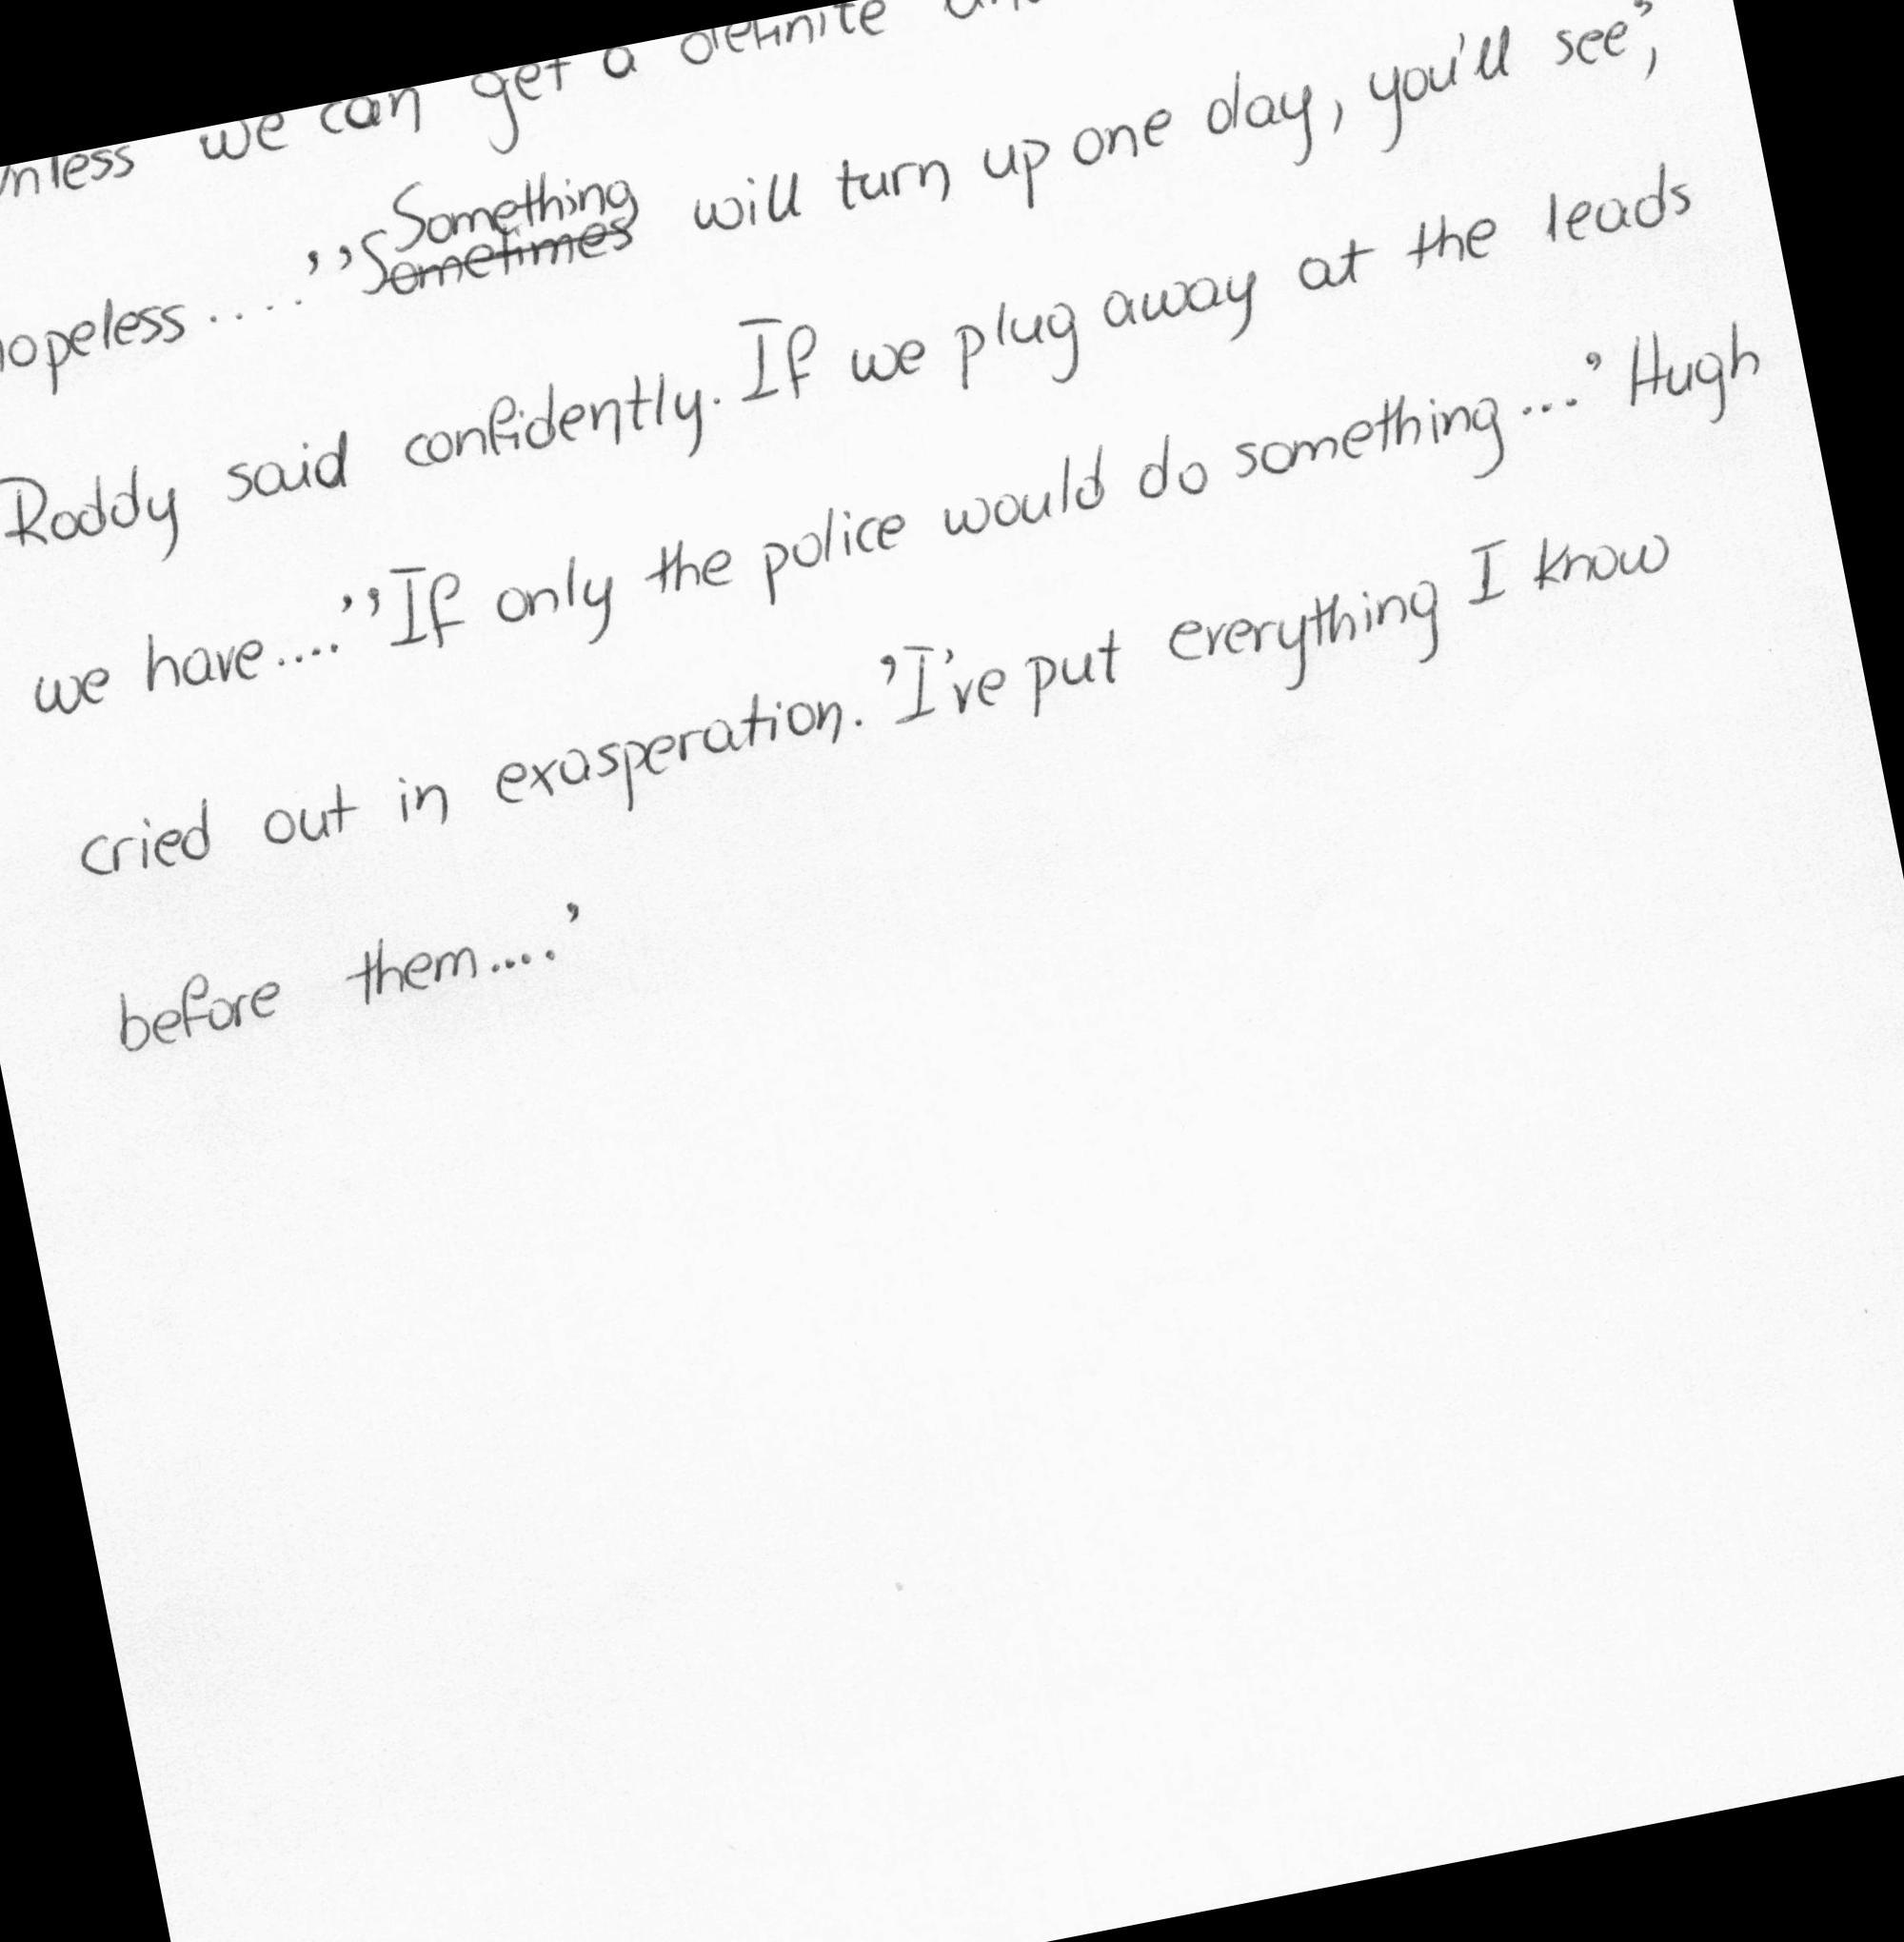 unless we can get a definite
hopeless....' 'Something ~~Sometimes~~ will turn up one day, you'll see',
Roddy said confidently. If we plug away at the leads
we have....' 'If only the police would do something...' Hugh
cried out in exasperation. 'I've put everything I know
before them....'